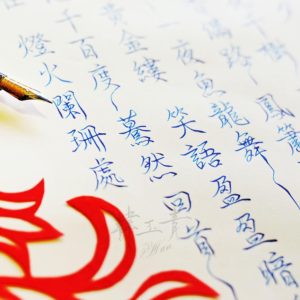 千樹
滿路 鳳簫
一夜魚龍舞
黃金縷 笑語盈盈暗
千百度 驀然回首
燈火闌珊處